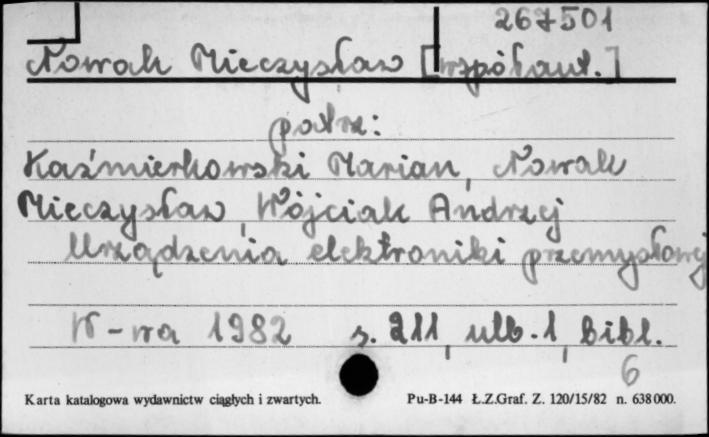 267501
Nowak Mieczysław [współaut.]
patrz:
Kaźmierkowski Marian, Nowak
Mieczysław, Wójciak Andrzej
Urządzenia elektroniki przemysłowej
W-wa 1982 s. 211, ulb. 1, bibl.
6
Karta katalogowa wydawnictw ciągłych i zwartych. Pu-B-144 Ł.Z.Graf. Z. 120/15/82 n. 638000.